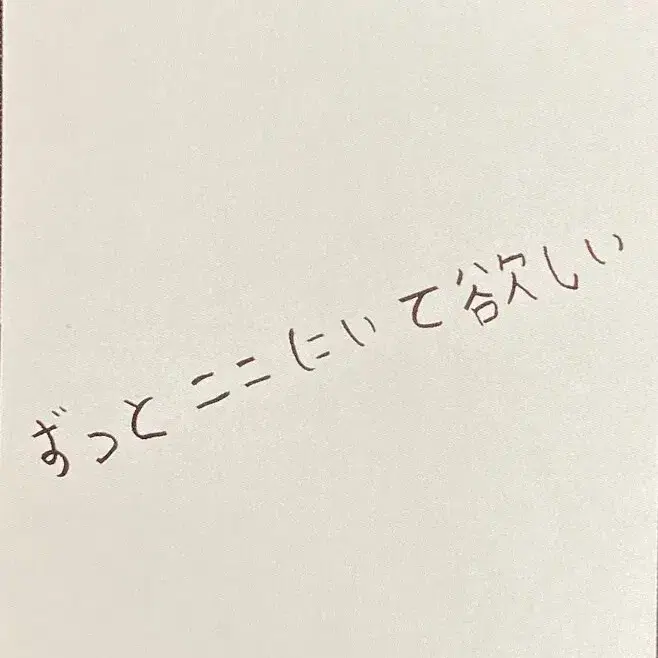 ずっとここにいて欲しい